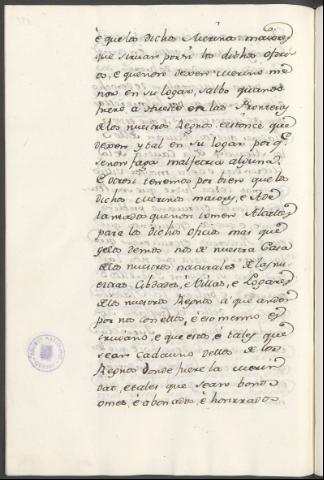 è que los dichos Merinos maiores
que sirvan por si los dichos ofici-
os, e que non dexen merino me-
nor en su logar, salbo quando
fuere a Nuestro en las Fronteras
de los nuestros Regnos estonce que
dexen y tal en su logar por q.e
se non faga malfetria alguna.
E otrosi tenemos por bien que los
dichos merinos maiores, e Ade-
lantados que non tomen Alcaldes
para los dichos oficios mas que
gelos demos nos de nuestra Casa
de los nuestros naturales de las nu-
estras Cibdades, é Villas, e Logares
de los nuestros Regnos à que anden
por nos con ellos, é eso mesmo es-
crivano, e que estos, e tales que
sean cadauno dellos de los
Regnos donde fuere la merin-
dat, etales que sean bonos
omes, é abonados, è honrrados